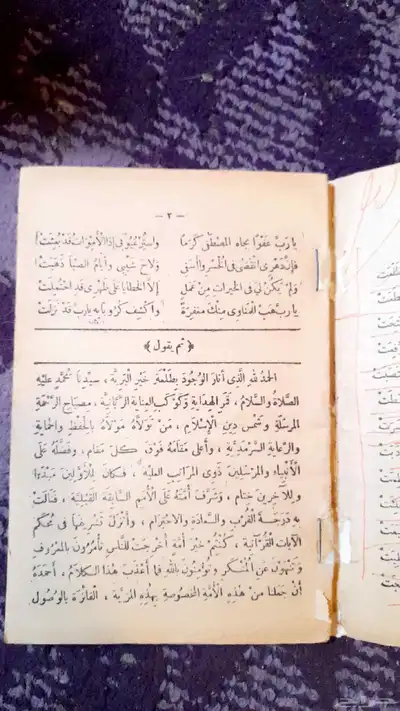 — ٢ —
يا رَبِّ عَفْوًا بجاه المصطفى كَرَمًا واستر عيوبى إذا الأموات قد بُعِثَتْ
فإنَّ دهرى انقضى فى الخُسْرِ وا أسفى ولاحَ شيبى وأيامُ الصبا ذَهَبَتْ
ولم يكنْ لى فى الخيرات مِنْ عَملٍ إلا الخطايا على ظهرى قد احتملت
يا ربِّ هَبْ لهناوى منك مغفرةً واكشِف كُرُوبا به يارب قَدْ نَزَلَتْ
﴿ ثم يقول ﴾
الحمدُ للهِ الَّذى أَنارَ الوُجُودَ بِطَلْعَةِ خَيْرِ البَرِيَّةِ ، سيِّدِنا مُحَمَّدٍ عليْهِ
الصَّلاةُ والسَّلامُ ، قَمَرِ الهِدَايةِ وَكَوْكَبِ العِنايةِ الرَّبَّانِيَّةِ ، مصباحِ الرَّحْمَةِ
المرسَلَةِ وشَمْسِ دِينِ الإِسْلامِ ، مَنْ تَوَلاَّهُ مَوْلاَهُ بالحِفْظِ والحمَايةِ
والرِّعايةِ السَّرْمَدِيَّةِ ، وأعلى مَقَامَهُ فَوْقَ كلِّ مَقَامٍ ، وفَضَّلَهُ على
الأنْبِياءِ والمُرْسَلِينَ ذَوِى المرَاتِبِ العَلِيَّةِ ، فكانَ لِلأَوَّلِينَ مَبْدَءًا
ولِلآخِرِينَ خِتَام ، وشَرَّفَ أُمَّتَهُ على الأُمَمِ السابقةِ القَبْلِيَّةِ ، فَنَالَتْ
بِهِ دَرَجَةَ القُرْبِ والسَّعادةِ والاحْتِرامِ ، وأَنْزَلَ تَشْرِيفَهَا فى مُحْكَمِ
الآيات القُرْآنِيَّةِ ، كُنْتُمْ خَيْرَ أُمَّةٍ أُخْرِجَتْ للنَّاسِ تأْمُرُونَ بالمَعْرُوفِ
وتَنْهَوْنَ عَنِ المُنْكَرِ وتُؤْمِنُونَ باللهِ فما أَعْذَبَ هٰذَا الكلامَ ، أَحْمَدُهُ
أَنْ جَعَلَنا مِنْ هَذِهِ الأُمَّةِ المَخْصُوصَةِ بِهَذِهِ المَزِيَّةِ ، الفَائِزَةِ بالوُصُولِ